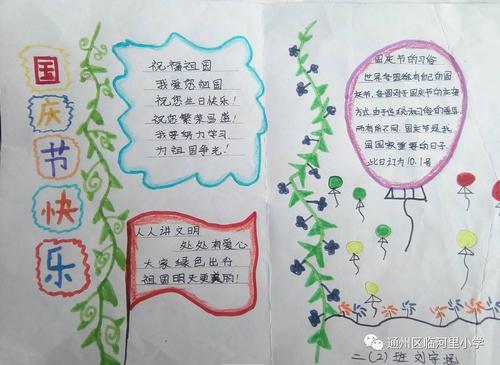 国庆节快乐
祝福祖国
我爱您祖国
祝您生日快乐!
祝您繁荣昌盛!
我要努力学习
为祖国争光!
人人讲文明
处处有爱心
大家绿色出行
祖国明天更美丽!
国庆节的习俗
世界各国都有自己的国
庆节,各国对于国庆节的庆祝
方式,由于传统和习俗的
而有所不同。国庆节是我
国国家重要的日子。
此日订为10.1号
二(2)班 刘宇
通州区临河里小学